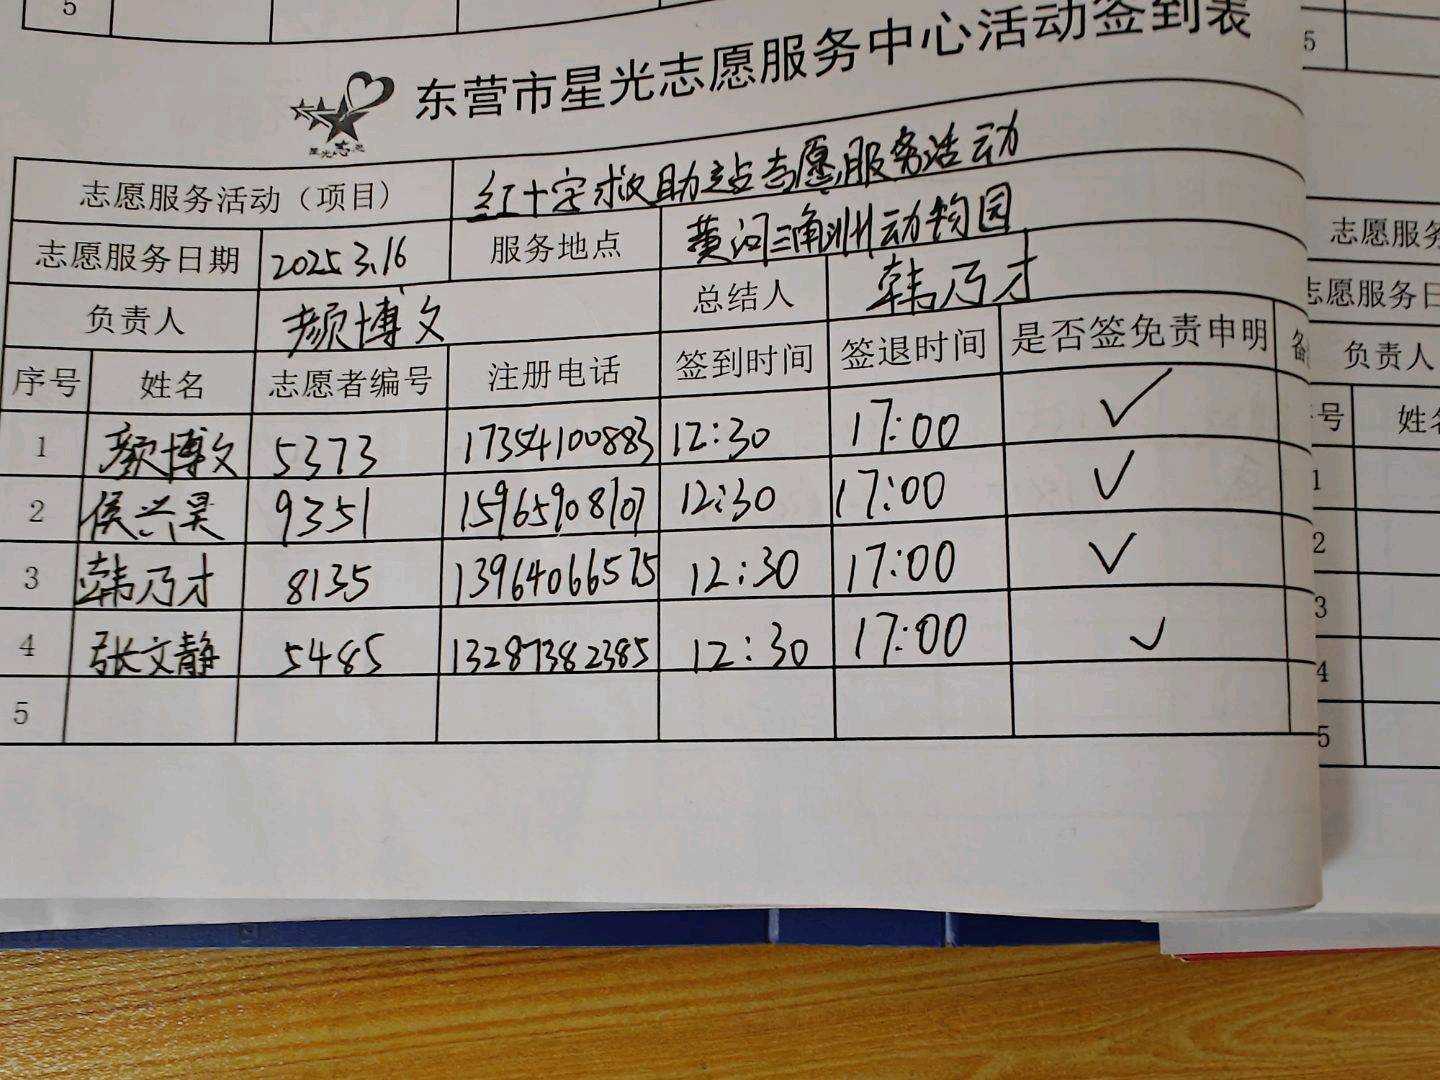 5
东营市星光志愿服务中心活动签到表
星光志愿
志愿服务活动（项目） 红十字救助站志愿服务活动
志愿服务日期 2025.3.16 服务地点 黄河三角洲动物园
负责人 颜博文 总结人 韩乃才
序号 姓名 志愿者编号 注册电话 签到时间 签退时间 是否签免责申明
1 颜博文 5373 17354100883 12:30 17:00 ✓
2 侯兴昊 9351 15965908707 12:30 17:00 ✓
3 韩乃才 8135 13964066575 12:30 17:00 ✓
4 张文静 5485 13287382385 12:30 17:00 ✓
5
5
志愿服务
志愿服务日
负责人
号 姓名
1
2
3
4
5